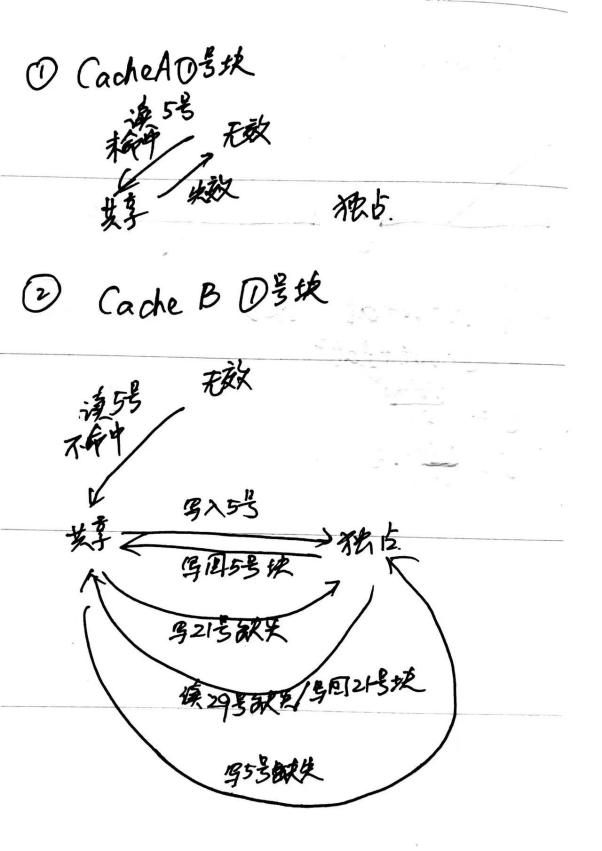 ① CacheA①号块
读 5号
未命中
无效
共享
失效
独占.
② Cache B ①号块
无效
读5号
不命中
共享
写入5号
独占.
写回5号块
写21号缺失
读29号缺失/写回21号块
写5号缺失